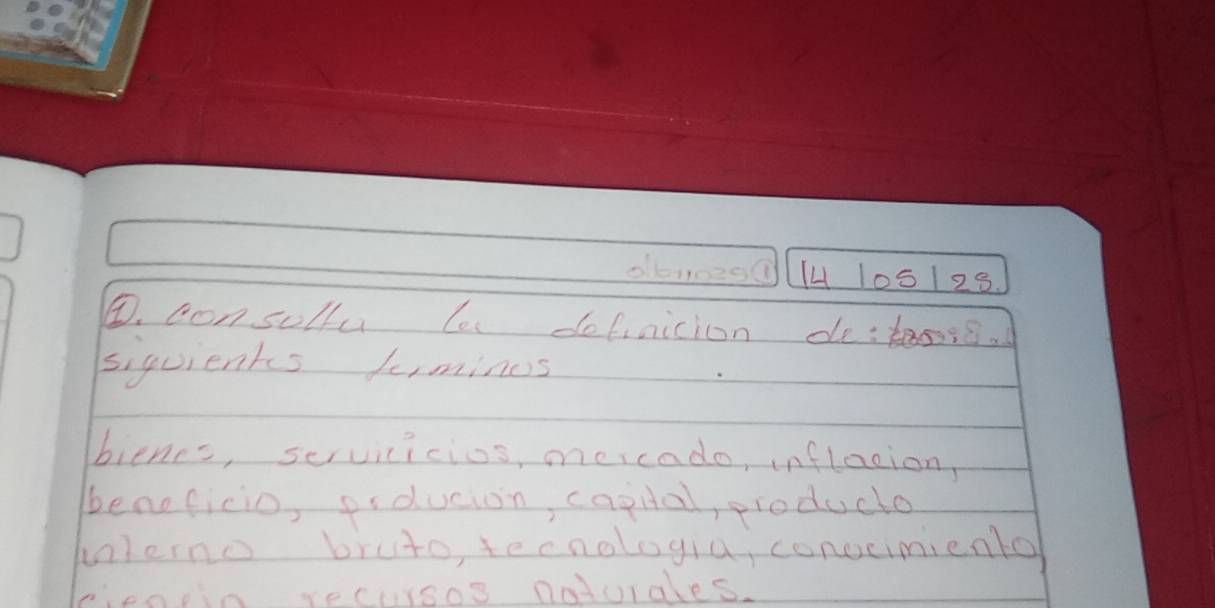 14 / 05 / 25.
①. consulta la definicion de:
siguientes terminos
bienes, servicicios, mercado, inflacion,
beneficio, producion, capital, producto
interno bruto, tecnologia, conocimiento,
ciencia recursos naturales.